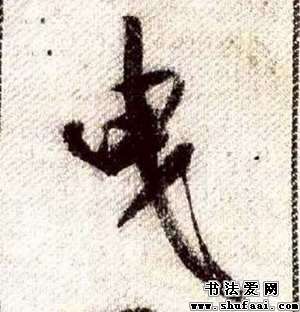 曳
书法爱网
www.shufaai.com